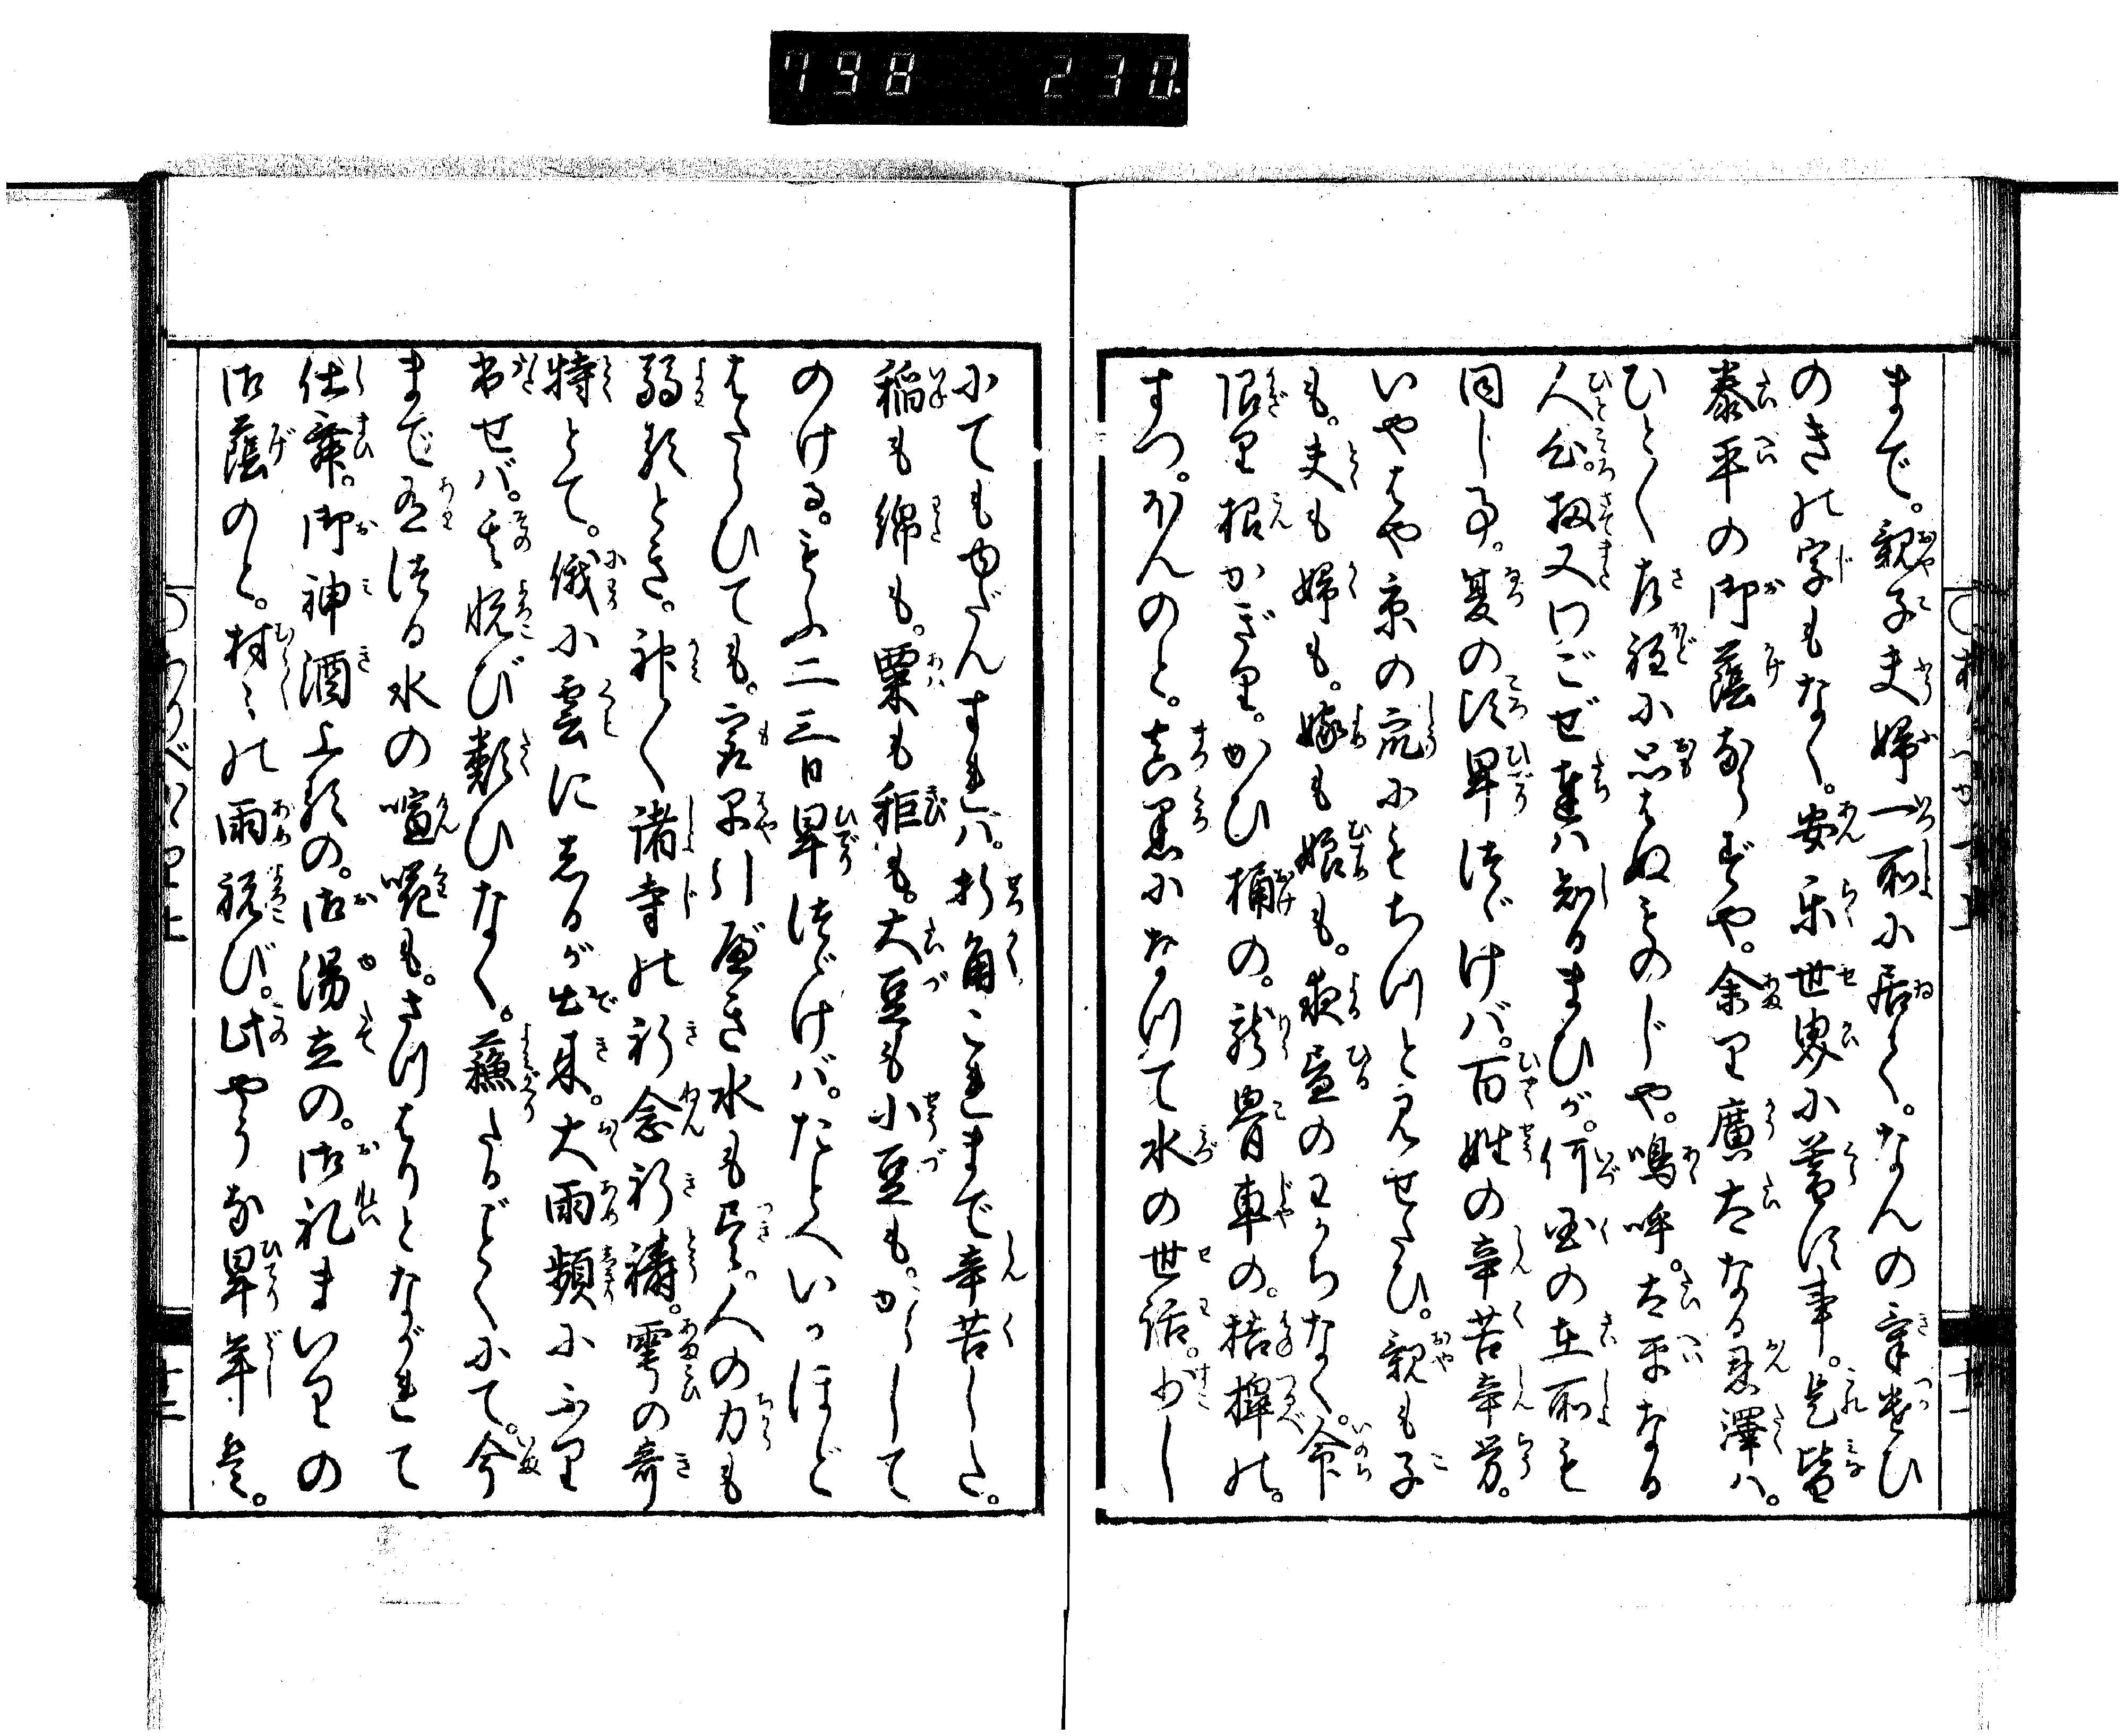 798 230
まで。親子夫婦一所に居て。なんの気遣ひ
のきの字もなく。安楽世界に暮す事。是皆
泰平の御蔭ならずや。余り廣大なる恩澤ハ。
ひとく左程に思はぬものじや。嗚呼。太平なる
人心。扨又わごぜ達ハ知るまひが。何国の在所も
同じ事。夏の頃旱つゞけバ。百姓の辛苦辛労。
いやはや京の衆にもちつと見せたひ。親も子
も。夫も婦も。嫁も娘も。夜昼のわかちなく。命
限り根かぎり。かひ桶の。龍骨車の。桔槹の。
すつ。ほんのと。真黒になつて水の世話。少し
にてもゆだんすれバ。折角これまで辛苦した。
稲も綿も。粟も秬も。大豆も小豆も。からして
のける。もふ二三日旱つゞけバ。たとへいかほど
はたらひても。最早引べき水も尽。人の力も
弱るとき。神〳〵諸寺の祈念祈祷。雩の奇
特とて。俄に雲にしるが出来。大雨頻にふり
出せバ。其悦び類ひなく。蘇たるごとくにて。今
まで有つる水の喧嘩も。さつはりとながれて
仕舞。御神酒上るの。御湯立の。御礼まいりの
御蔭のと。村〻の雨悦び。此やうな旱年など。
十一
十二